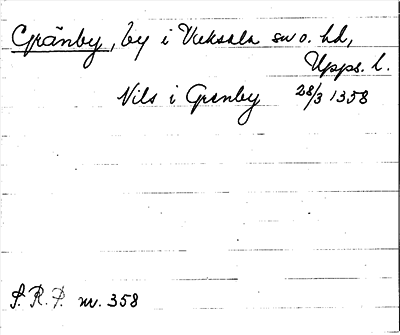 Gränby, by i Vaksala sn o. hd,
Upps. l.
Nils i Grenby 28/3 1358
S. R. P. nr. 358